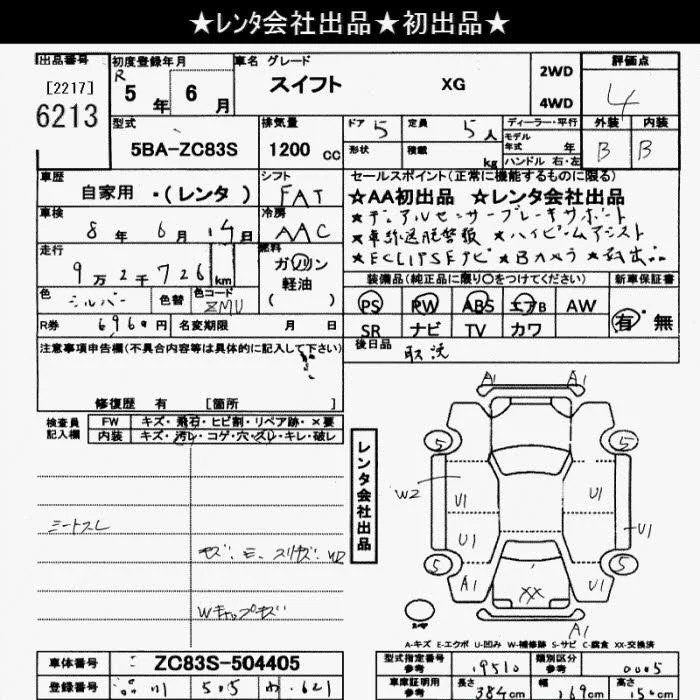 ★レンタ会社出品★初出品★
出品番号 初度登録年月 車名 グレード 評価点
[2217] R 5年 6月 スイフト XG 2WD 4
6213 4WD 外装 内装
型式 排気量 ドア 5 定員 5人 ディーラー・平行 B B
5BA-ZC83S 1200 cc 形状 積載 kg モデル年式 年
ハンドル 右・左
車歴 シフト セールスポイント(正常に機能するものに限る)
自家用 ・(レンタ) FAT ★AA初出品 ★レンタ会社出品
車検 8年 6月 14日 冷房 AAC ★デュアルセンサーブレーキサポート
★車線逸脱警報 ★ハイビームアシスト
走行 9万2千726km 燃料 ガソリン ★ECLIPSEナビ ★Bカメラ
軽油
( )
装備品(純正品に限り〇をつけてください) 新車保証書
色 シルバー 色替 色コード ZMU PS PW ABS エアB AW 有・無
R券 6960円 名変期限 月 日 SR ナビ TV カワ
注意事項申告欄(不具合内容等は具体的に記入して下さい) 後日品 取説
修復歴 有 [箇所 ]
検査員記入欄 FW キズ・飛石・ヒビ割・リペア跡・×要
内装 キズ・汚レ・コゲ・穴・スレ・キレ・破レ
レンタ会社出品
A1 A1
5 5
W2 U1 U1
U1 U1
5 5
A1 XX U1
A1
シートスレ
Wキャップキズ
A-キズ E-エクボ U-凹み W-補修跡 S-サビ C-腐食 XX-交換済
車体番号 ZC83S-504405 型式指定番号 参考 19510 類別区分 参考 0005
登録番号 品川 505 わ・621 車庫証明用 参考 長さ 384cm 幅 169cm 高さ 150cm